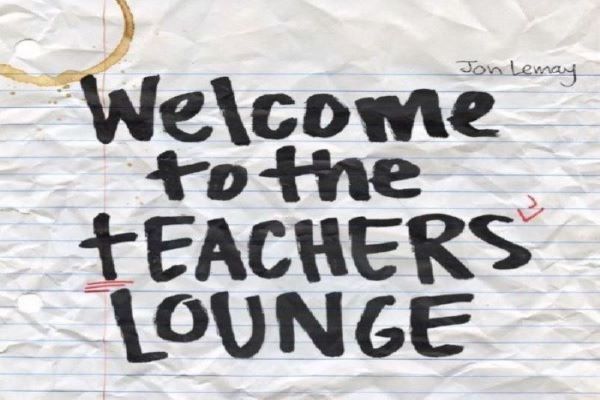 Jon Lemay
Welcome
to the
tEACHERS'
LOUNGE